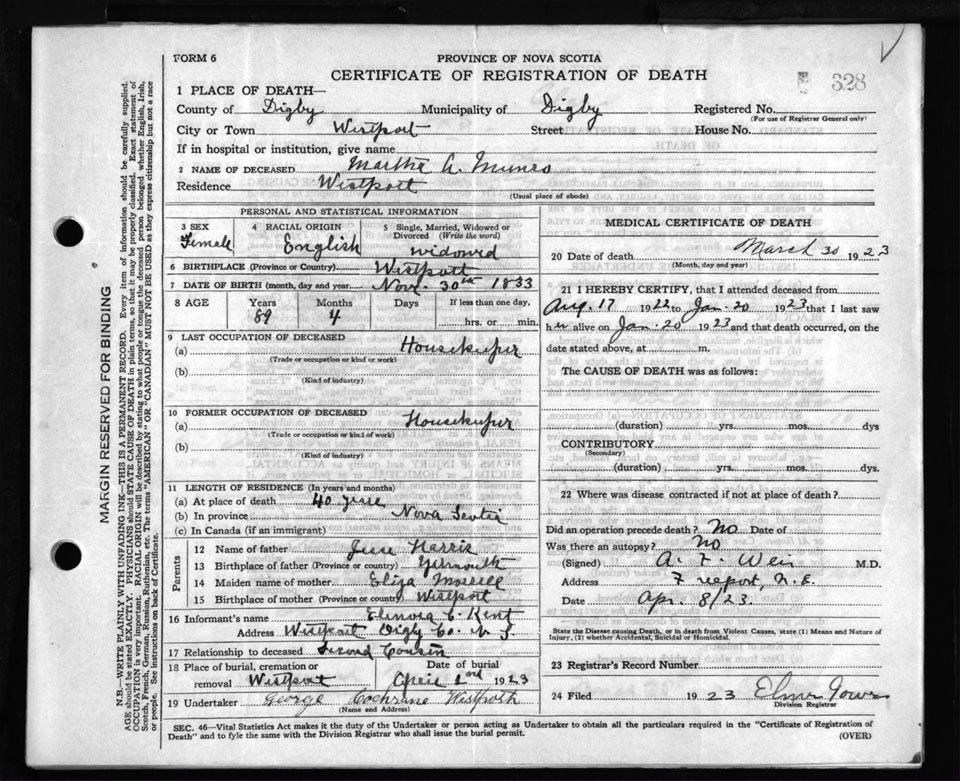 FORM 6
PROVINCE OF NOVA SCOTIA
CERTIFICATE OF REGISTRATION OF DEATH
328
1 PLACE OF DEATH—
County of Digby Municipality of Digby Registered No.
(For use of Registrar General only)
City or Town Westport Street House No.
If in hospital or institution, give name
2 NAME OF DECEASED Martha A.
Residence Westport
(Usual place of abode)
PERSONAL AND STATISTICAL INFORMATION
3 SEX 4 RACIAL ORIGIN 5 Single, Married, Widowed or Divorced (Write the word)
Female English widowed
6 BIRTHPLACE (Province or Country) Westport
7 DATE OF BIRTH (month, day and year) Nov. 30th 1833
8 AGE Years Months Days If less than one day,
89 4 hrs. or min.
9 LAST OCCUPATION OF DECEASED
(a) Housekeeper
(Trade or occupation or kind of work)
(b)
(Kind of industry)
10 FORMER OCCUPATION OF DECEASED
(a) Housekeeper
(Trade or occupation or kind of work)
(b)
(Kind of industry)
11 LENGTH OF RESIDENCE (In years and months)
(a) At place of death 40 years
(b) In province Nova Scotia
(c) In Canada (if an immigrant)
Parents
12 Name of father Jesse Harris
13 Birthplace of father (Province or country) Yarmouth
14 Maiden name of mother Eliza Morrell
15 Birthplace of mother (Province or country) Westport
16 Informant's name Elenora C. Kent
Address Westport Digby Co. N. S
17 Relationship to deceased Second Cousin
18 Place of burial, cremation or removal Westport Date of burial April 1923
19 Undertaker George Cochrane Westport
(Name and Address)
MEDICAL CERTIFICATE OF DEATH
20 Date of death March 30 1923
(Month, day and year)
21 I HEREBY CERTIFY, that I attended deceased from
Aug. 17 1922 to Jan. 20 1923 that I last saw
her alive on Jan. 20 1923 and that death occurred, on the
date stated above, at m.
The CAUSE OF DEATH was as follows:
(duration) yrs. mos. dys
CONTRIBUTORY
(Secondary)
(duration) yrs. mos. dys.
22 Where was disease contracted if not at place of death?
Did an operation precede death? No Date of
Was there an autopsy? No
(Signed) A. F. Weir M.D.
Address Freeport, N.S.
Date Apr. 8/23.
State the Disease causing Death, or in death from Violent Causes, state (1) Means and Nature of
Injury, (2) whether Accidental, Suicidal or Homicidal.
23 Registrar's Record Number
24 Filed 1923
Division Registrar
SEC. 46—Vital Statistics Act makes it the duty of the Undertaker or person acting as Undertaker to obtain all the particulars required in the "Certificate of Registration of
Death" and to fyle the same with the Division Registrar who shall issue the burial permit. (OVER)
MARGIN RESERVED FOR BINDING
N.B.—WRITE PLAINLY WITH UNFADING INK—THIS IS A PERMANENT RECORD. Every item of information should be carefully supplied.
AGE should be stated EXACTLY. PHYSICIANS should STATE CAUSE OF DEATH in plain terms, so that it may be properly classified. Exact statement of
OCCUPATION is very important. RACIAL ORIGIN will be described by stating to what people or tongue the deceased person belonged whether English, Irish,
Scotch, French, German, Russian, Ruthenian, etc. The terms "AMERICAN" OR "CANADIAN" MUST NOT BE USED as they express citizenship but not a race
or people. See instructions on back of Certificate.